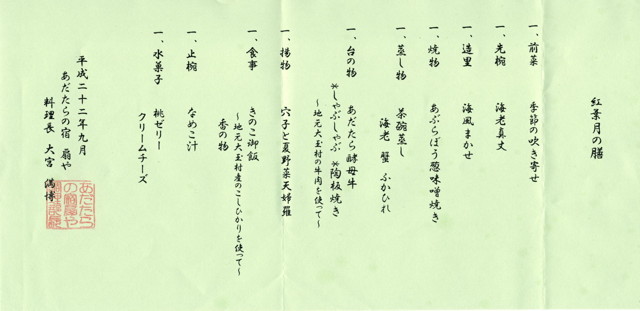 紅葉月の膳
一、前菜 季節の吹き寄せ
一、先椀 海老真丈
一、造里 海風まかせ
一、焼物 あぶらぼう葱味噌焼き
一、蒸し物 茶碗蒸し
海老 蟹 ふかひれ
一、台の物 あだたら酵母牛
*しゃぶしゃぶ *陶板焼き
~地元大玉村の牛肉を使って~
一、揚物 穴子と夏野菜天婦羅
一、食事 きのこ御飯
~地元大玉村産のこしひかりを使って~
香の物
一、止椀 なめこ汁
一、水菓子 桃ゼリー
クリームチーズ
平成二十二年九月
あだたらの宿 扇や
料理長 大宮 満博
あだたら
の宿扇や